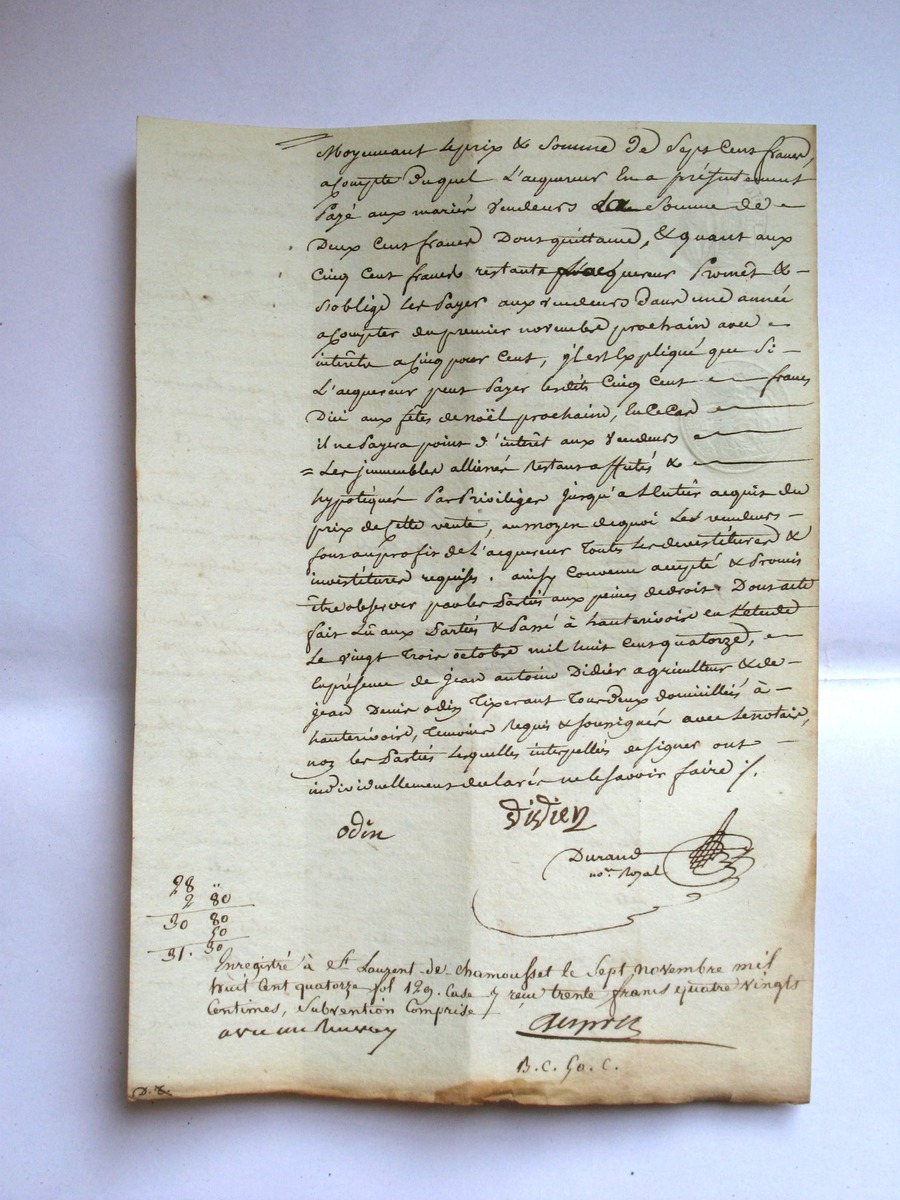 Moyennant le prix & somme de sept cent francs,
acompte duquel l'acquereur en a présentement
payé aux mariés vendeurs la somme de
deux cent francs dont quittance, & quant aux
cinq cent francs restants l'acquereur promet &
s'oblige les payer aux vendeurs dans une année
acompter du premier novembre prochain avec
intérêts a cinq pour cent, j'l est expliqué que si
l'acquereur peut payer lesdits cinq cent francs
dici aux fêtes de noël prochain, en ce cas
il ne payera point d'intérêt aux vendeurs
= Les jmmeubles alliénés restant affectés &
hypotéqués par privilège jusqu'a l'entier acquis du
prix de cette vente, au moyen de quoi les vendeurs
font au profit de l'acquereur toutes les devestitures &
investitures requises. ainsy convenu accepté & promis
être observer par les parties aux peines de droit. Dont acte
fait lû aux parties & passé à hauterivoire en l'etude
le vingt trois octobre mil huit cent quatorze, en
la présence de jean antoine Didier agriculteur & de
jean Denis odin tixerant tous deux domiciliés à
hauterivoire, temoins requis & soussignés avec le notaire,
non les parties lesquelles interpellées de signer ont
individuellement declarés ne le savoir faire /.
odin Didier
Durand
no.re Royal
28 "
2 80
30 80
50
31. 30
Enregistré à St Laurent-de-chamousset le sept novembre mil
huit cent quatorze fol 129. Case 7 reçu trente francs quatre vingts
Centimes, subvention Comprise
B.C. 50. C.
D. &